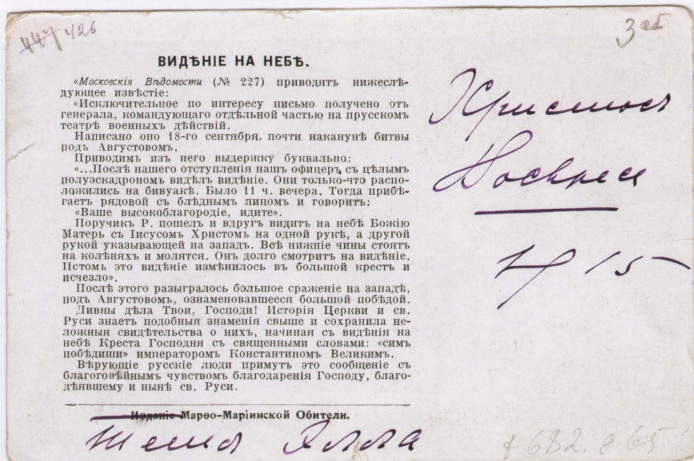 447 426
ВИДѢНІЕ НА НЕБѢ.
«Московскія Вѣдомости (№ 227) приводятъ нижеслѣ-
дующее извѣстіе:
«Исключительное по интересу письмо получено отъ
генерала, командующаго отдѣльной частью на прусскомъ
театрѣ военныхъ дѣйствій.
Написано оно 18-го сентября, почти наканунѣ битвы
подъ Августовомъ.
Приводимъ изъ него выдержку буквально:
«...Послѣ нашего отступленія нашъ офицеръ, съ цѣлымъ
полуэскадрономъ видѣлъ видѣніе. Они только-что распо-
ложились на бивуакѣ. Было 11 ч. вечера. Тогда прибѣ-
гаетъ рядовой съ блѣднымъ лицомъ и говоритъ:
«Ваше высокоблагородіе, идите».
Поручикъ Р. пошелъ и вдругъ видитъ на небѣ Божію
Матерь съ Іисусомъ Христомъ на одной рукѣ, а другой
рукой указывающей на западъ. Всѣ нижніе чины стоятъ
на колѣняхъ и молятся. Онъ долго смотритъ на видѣніе.
Потомъ это видѣніе измѣнилось въ большой крестъ и
исчезло».
Послѣ этого разыгралось большое сраженіе на западѣ,
подъ Августовомъ, ознаменовавшееся большой побѣдой.
Дивны дѣла Твои, Господи! Исторія Церкви и св.
Руси знаетъ подобныя знаменія свыше и сохранила не-
ложныя свидѣтельства о нихъ, начиная съ видѣнія на
небѣ Креста Господня съ священными словами: «симъ
побѣдиши» императоромъ Константиномъ Великимъ.
Вѣрующіе русскіе люди примутъ это сообщеніе съ
благоговѣйнымъ чувствомъ благодаренія Господу, благо-
дѣявшему и нынѣ св. Руси.
Изданіе Марѳо-Маріинской Обители.
тетя Элла
Христосъ
Воскресе
15